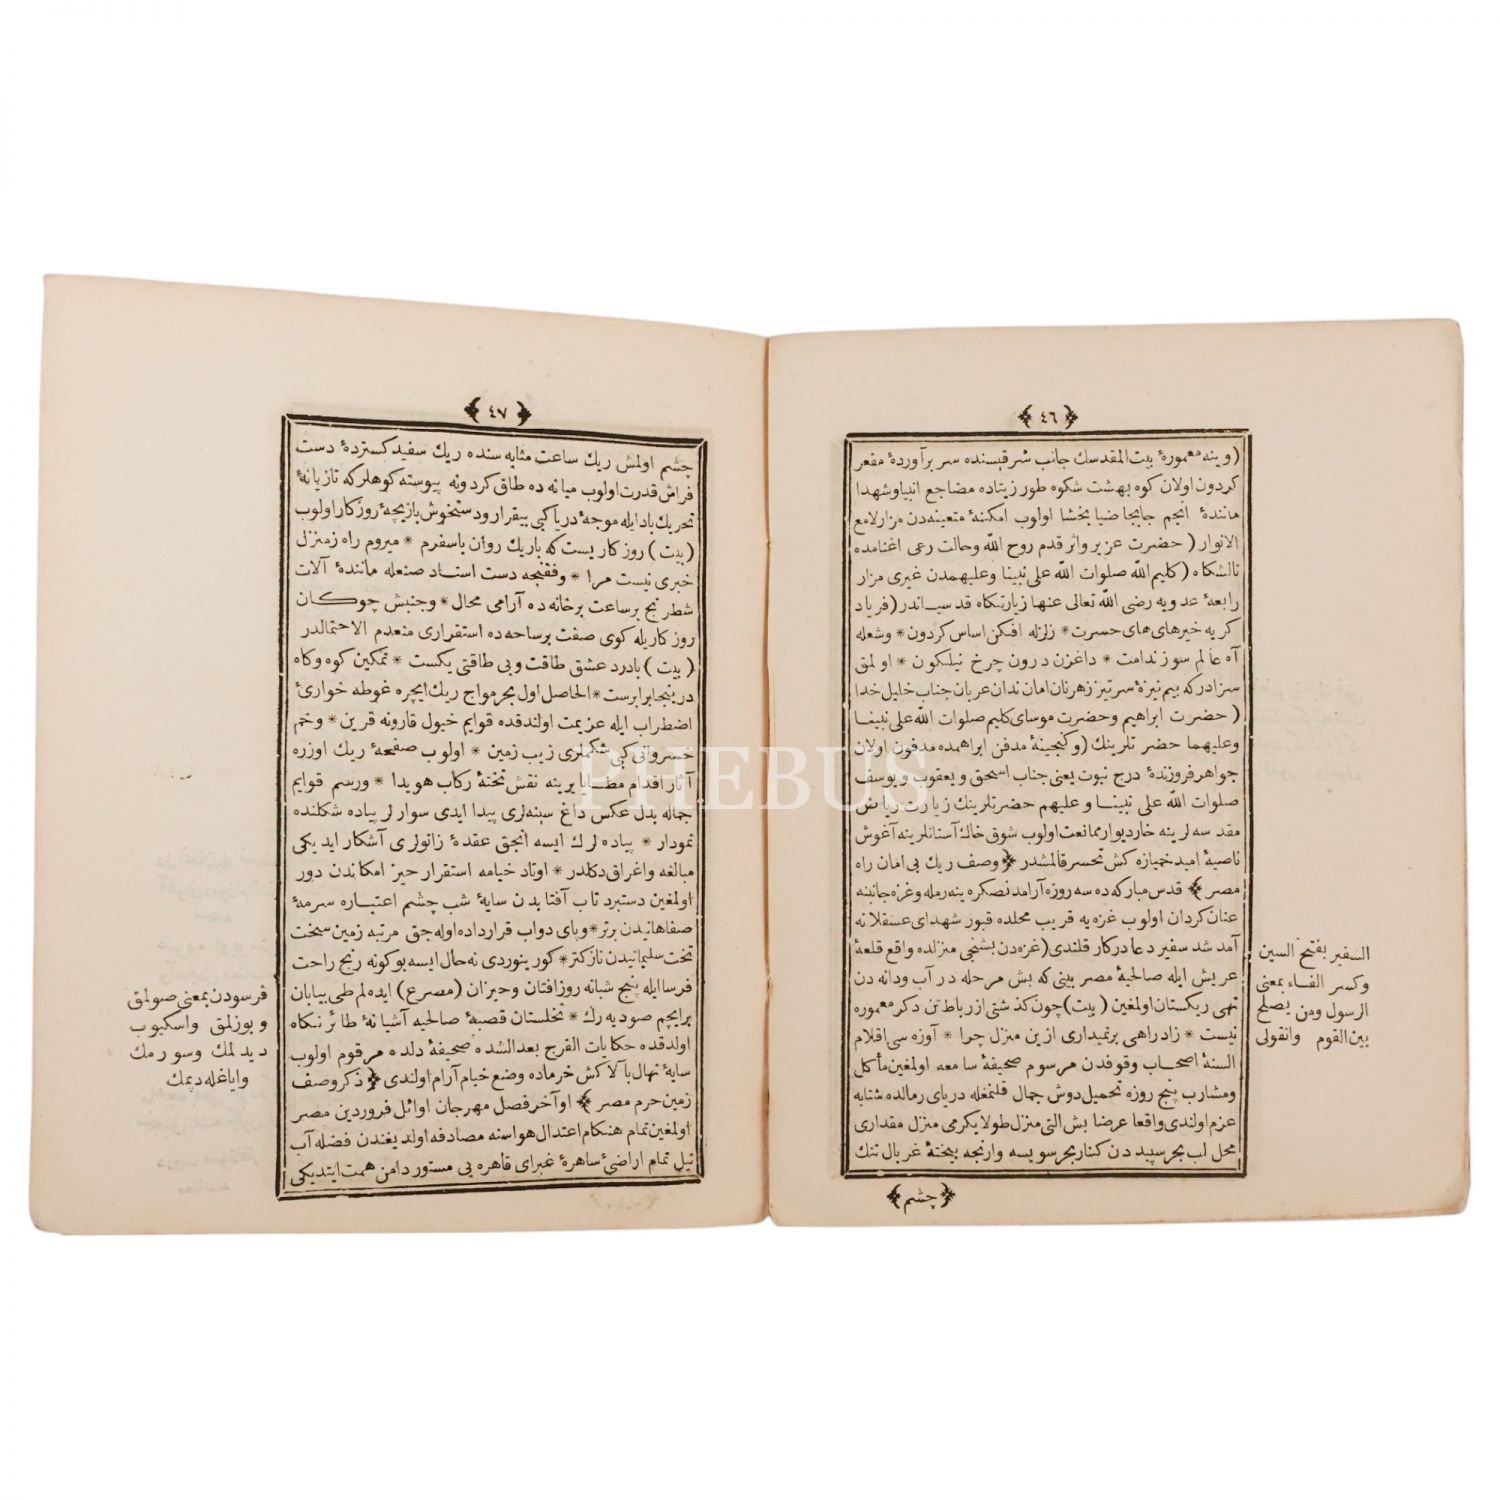 ﴿ ٤٦ ﴾
(وينه معمورهٔ بيت المقدسك جانب شرقيسنده سر برآوردهٔ مقعر
كردون اولان كوه بهشت شكوه طور زيتاده مضاجع انبيا وشهدا
مانندهٔ انجم جابجا ضيا بخشا اولوب امكنهٔ متعينه دن مزار لامع
الانوار (حضرت عزير واثر قدم روح الله وحالت رعى اغنامده
نالشكاه (كليم الله صلوات الله على نبينا وعليهمدن غيرى مزار
رابعهٔ عدويه رضى الله تعالى عنها زيارتكاه قدسيـاندر (فرياد
كريه خيزهاى هاى حسرت * زلزله افكن اساس كردون * وشعله
آه عالم سوز ندامت * داغزن درون چرخ نيلكون * اولمق
سزادركه بيم نيزهٔ سرتيز زهرنان امان ندان عربان جناب خليل خدا
(حضرت ابراهيم وحضرت موساى كليم صلوات الله على نبينا
وعليهما حضرتلرينك (وكنجينهٔ مدفن ابراهمده مدفون اولان
جواهر فروزندهٔ درج نبوت يعنى جناب اسحق و يعقوب و يوسف
صلوات الله على نبينـا و عليهم حضرتلرينك زيارت رياض
مقدسه لرينه خار ديوار ممانعت اولوب شوق خاك آستانلرينه آغوش
ناصيهٔ اميد خميازه كش تحسر قالمشدر ﴿ وصف ريك بى امان راه
مصر ﴾ قدس مباركه ده سه روزه آرامدنصكره ينه رمله وغزه جانبنه
عنان كردان اولوب غزه يه قريب محلده قبور شهداى عسقلانه
آمد شد سفير دعا دركار قلندى (غزه دن بشنجى منزلده واقع قلعهٔ
عريش ايله صالحيهٔ مصر بينى كه بش مرحله در آب ودانه دن
تهى ريكستان اولمغين (بيت) چون كذشتى از رباط تن دكر معموره
نيست * زاد راهى برنميدارى ازين منزل چرا * آوزه سى اقلام
السنهٔ اصحـاب وقوفدن مرسوم صحيفهٔ سامعه اولمغين مأكل
ومشارب پنج روزه تحميل دوش جمال قلنمغله درياى رمالده شتابه
عزم اولندى واقعا عرضا بش التى منزل طولا يكرمى منزل مقدارى
محل لب بحر سپيد دن كنار بحر سويسه وارنجه بيختهٔ غربال تنك
﴿ چشم ﴾
السفير بفتح السين
وكسر الفـاء بمعنى
الرسول ومن يصلح
بين القوم وانقولى
﴿ ٤٧ ﴾
چشم اولمش ريك ساعت مثابه سنده ريك سفيد كستردهٔ دست
فراش قدرت اولوب ميانه ده طاق كردونه پيوسته كوهلركه تازيانهٔ
تحريك بادايله موجهٔ دريا كبى بيقرار ودستخوش بازيچهٔ روزكار اولوب
(بيت) روزكاريست كه باريك روان باسفرم * ميروم راه زمنزل
خبرى نيست مرا * وفقيجه دست استـاد صنعله مانندهٔ آلات
شطرنج بر ساعت برخانه ده آرامى محال * وجنبش چوكـان
روزكاريله كوى صفت برساحه ده استقرارى منعدم الاحتمالدر
(بيت) بادرد عشق طاقت وبى طاقتى يكيست * تمكين كوه وكاه
درينجا برابرست * الحاصل اول بحر مواج ريك ايچره غوطه خوارئ
اضطراب ايله عزيمت اولندقده قوايم خيول قارونه قرين * وخم
خسروانى كبى شكملرى زيب زمين * اولوب صفحهٔ ريك اوزره
آثار اقدام مطـايا يرينه نقش تختهٔ ركاب هويدا * ورسم قوايم
جماله بدل عكس داغ سينه لرى پيدا ايدى سوارلر پياده شكلنده
نمودار * پياده لرك ايسه انجق عقدهٔ زانولرى آشكار ايديكى
مبالغه واغراق دكلدر * اوتاد خيامه استقرار حيز امكاندن دور
اولمغين دستبرد تاب آفتابدن سايهٔ شب چشم اعتبـاره سرمهٔ
صفاهانيدن برتر * وپاى دواب قرارداده اوله جق مرتبه زمين سخت
تخت سليمانيدن نازكتر * كور ينوردى نه حال ايسه بوكونه رنج راحت
فرسا ايله پنج شبانه روز افتان وخيزان (مصرع) ايده لم طى بيابان
برايچم صو ديه رك * نخلستان قصبهٔ صالحيه آشيانهٔ طائر نكاه
اولدقده حكايات الفرج بعد الشده صحيفهٔ دلده مرقوم اولوب
سايهٔ نهال بالا كش خرماده وضع خيام آرام اولندى ﴿ ذكر وصف
زمين حرم مصر ﴾ اواخر فصل مهرجان اوائل فروردين مصر
اولمغين تمام هنكام اعتدال هواسنه مصادفه اولديغندن فضله آب
نيل تمام اراضئ ساهرهٔ غبراى قاهره يى مستور دامن همت ايتديكى
فرسودن بمعنى صولمق
و بوزلمق واسكيوب
ديدلمك وسورمك
واياغله دپمك
PHEBUS